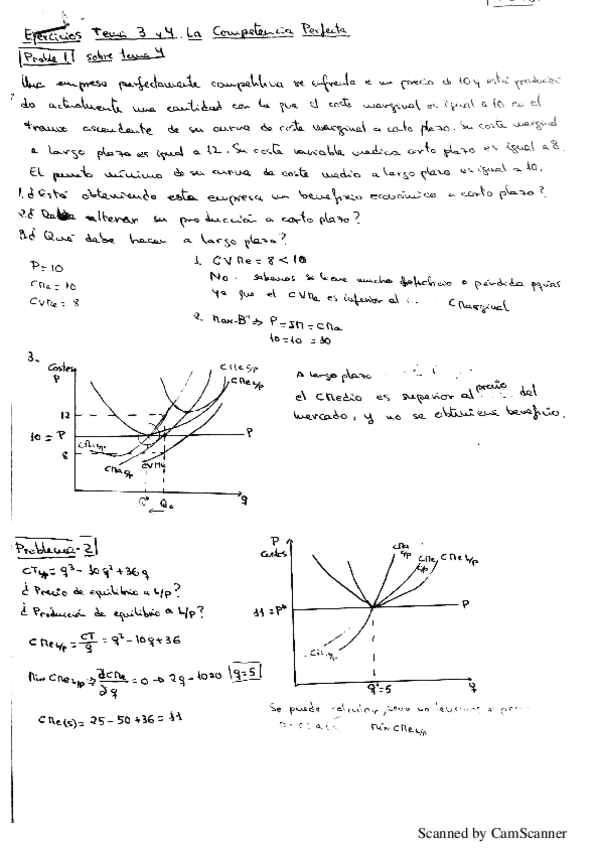 Ejercicios Tema 3 y 4. La Competencia Perfecta
Proble 1 sobre tema 4
Una empresa perfectamente competitiva se enfrenta a un precio de 10 y está producien
do actualmente una cantidad con la que el coste marginal es igual a 10 en el
tramo ascendente de su curva de coste marginal a corto plazo. Su coste marginal
a largo plazo es igual a 12. Su coste variable medio a corto plazo es igual a 8.
El punto mínimo de su curva de coste medio a largo plazo es igual a 10.
1. ¿Está obteniendo esta empresa un beneficio económico a corto plazo?
2. ¿Debe alterar su producción a corto plazo?
3. ¿Qué debe hacer a largo plazo?
P=10
CMa=10
CVMe=8
1. CVMe = 8 < 10
No sabemos si tiene mucho beneficio o pérdida
ya que el CVMe es inferior al CMarginal
2. Max.Bº => P=IM=CMa
10=10=10
3.
Costes
P
CMe c/p
CMe l/p
12
10 = P
8
P
CVMe
Q*
Q₀
q
A largo plazo
el CMedio es superior al precio del
mercado, y no se obtienen beneficio.
Problema-2
CT l/p = q³ - 10q² + 36q
¿Precio de equilibrio a L/p?
¿Producción de equilibrio a L/p?
CMe l/p = CT/q = q² - 10q + 36
Min CMe l/p => ∂CMe/∂q = 0 → 2q - 10 = 0 q=5
CMe(5) = 25 - 50 + 36 = 11
P
Costes
CMa
CMe
c/p
CMe L/p
11 = P*
P
q*=5
q
Se puede
min CMe L/p
Scanned by CamScanner